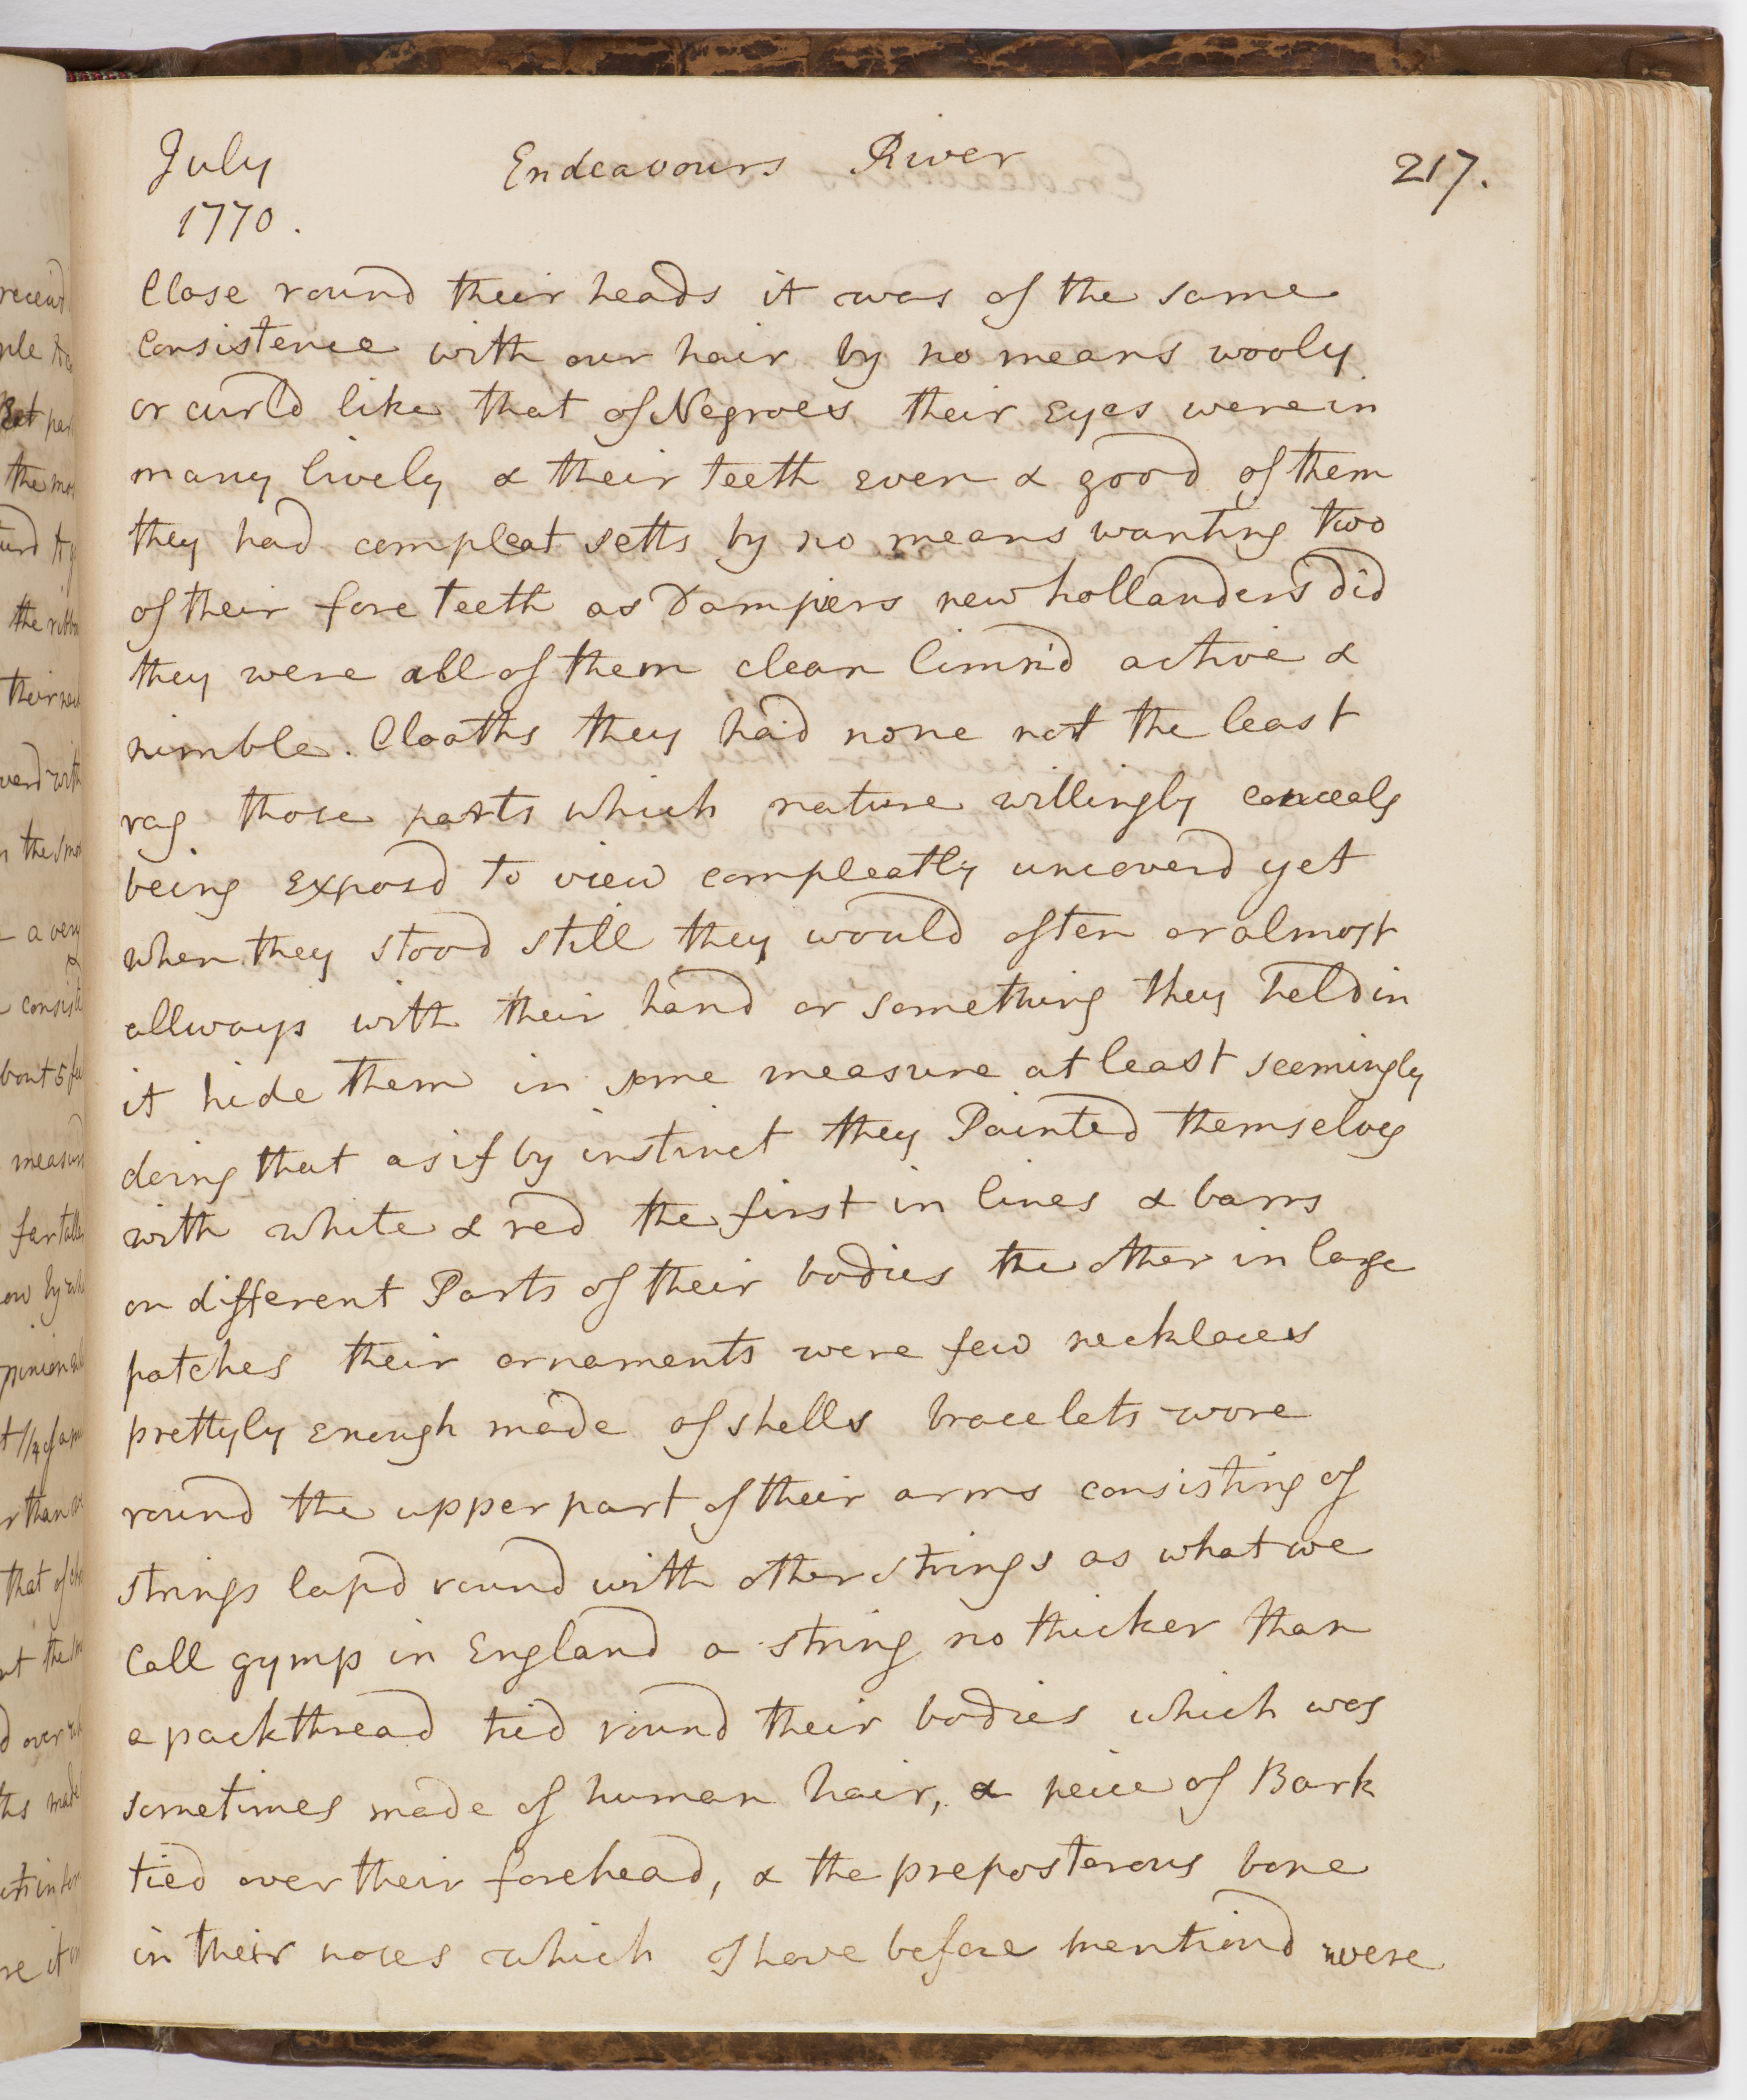 July Endeavours River 217.
1770.
Close round their heads it was of the same
consistence with our hair by no means wooly
or curld like that of Negroes their Eyes were in
many lively & their teeth even & good of them
they had compleat setts by no means wanting two
of their fore teeth as Dampiers new hollanders did
they were all of them clean limn'd active &
nimble. Cloaths they had none not the least
rag those parts which nature willingly conceals
being exposd to view compleatly uncoverd yet
when they stood still they would often or almost
allways with their hand or something they held in
it hide them in some measure at least seemingly
doing that as if by instinct they Painted themselves
with white & red the first in lines & barrs
on different Parts of their bodies the other in large
patches their ornaments were few necklaces
prettyly enough made of shells bracelets wore
round the upper part of their arms consisting of
strings lapd round with other strings as what we
Call gymp in England a string no thicker than
a packthread tied round their bodies which was
sometimes made of human hair, a peice of Bark
tied over their forehead, & the preposterous bone
in their noses which I have before mentiond were